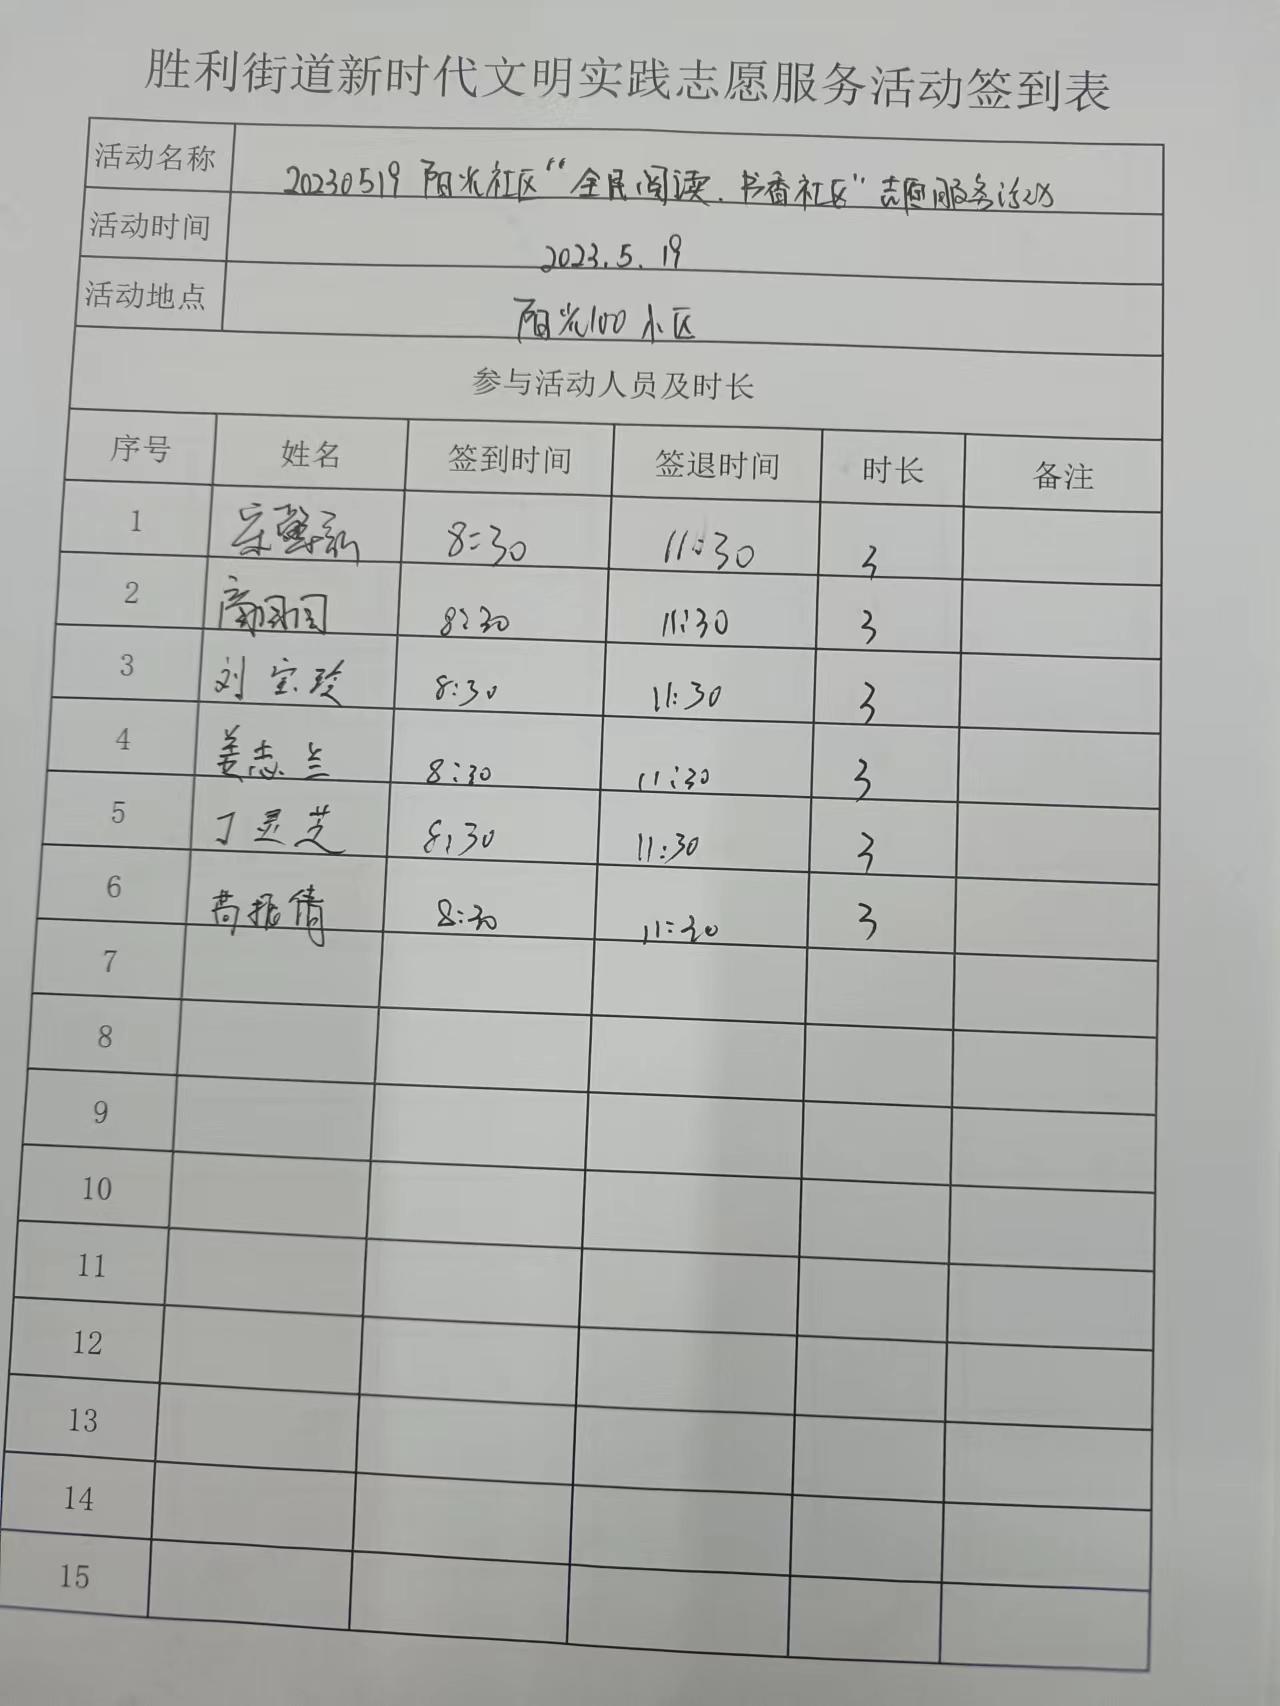 胜利街道新时代文明实践志愿服务活动签到表
活动名称 20230519 阳光社区“全民阅读、书香社区”志愿服务活动
活动时间 2023.5.19
活动地点 阳光100小区
参与活动人员及时长
序号 姓名 签到时间 签退时间 时长 备注
1 8:30 11:30 3
2 8:30 11:30 3
3 刘宝玲 8:30 11:30 3
4 姜志兰 8:30 11:30 3
5 丁灵芝 8:30 11:30 3
6 高振倩 8:30 11:30 3
7
8
9
10
11
12
13
14
15